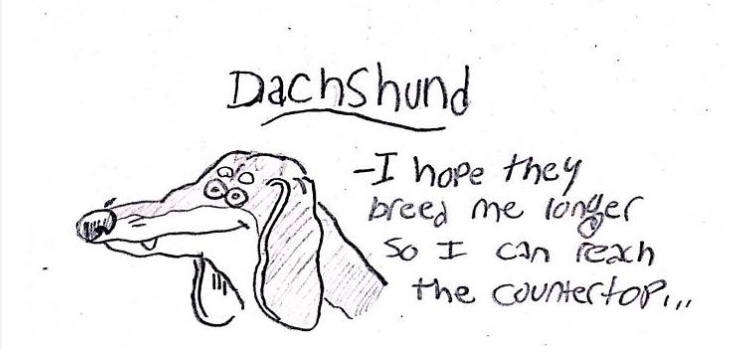 Dachshund
-I hope they
breed me longer
so I can reach
the countertop...